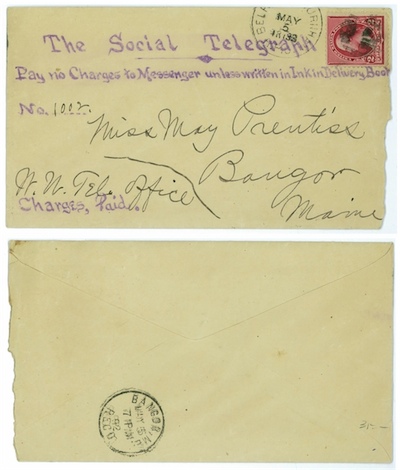 MAY
5
The Social Telegraph
Pay no Charges to Messenger unless written in Ink in Delivery Book
No. 1002.
Miss May Prentiss
Bangor
Maine
W. U. Tel. Office
Charges, Paid.
BANGOR, ME.
MAY
REC'D